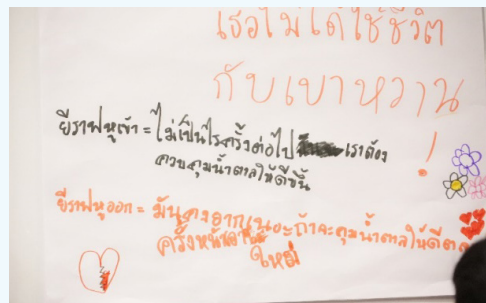 เธอไม่ได้ใช้ชีวิต
กับเบาหวาน
!
ยีราฟหูเข้า = ไม่เป็นไรครั้งต่อไป เราต้อง
ควบคุมน้ำตาลให้ดีขึ้น
ยีราฟหูออก = มันคงยากเนอะถ้าจะคุมน้ำตาลให้ดีตลอด
ครั้งหน้าเอาใหม่